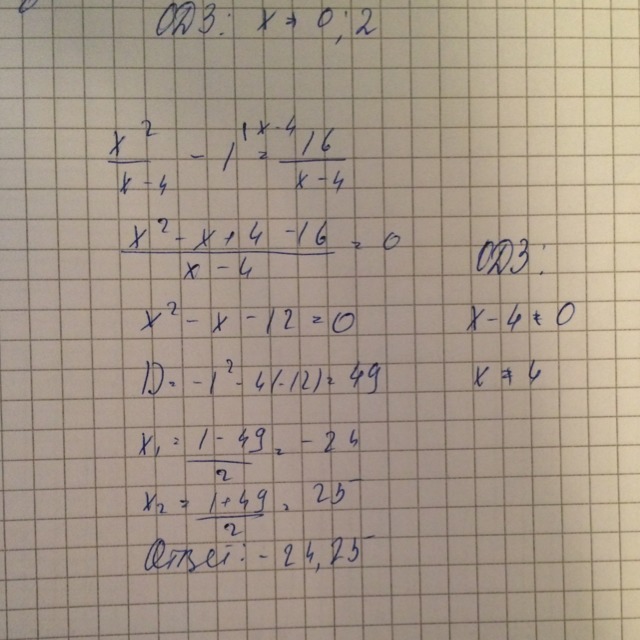 ОДЗ: x ≠ 0; 2
x²/(x-4) - 1^(x-4) = 16/(x-4)
(x² - x + 4 - 16)/(x - 4) = 0
x² - x - 12 = 0
D = -1² - 4(-12) = 49
x₁ = (1 - 49)/2 = -24
x₂ = (1 + 49)/2 = 25
Ответ: -24, 25
ОДЗ:
x - 4 ≠ 0
x ≠ 4